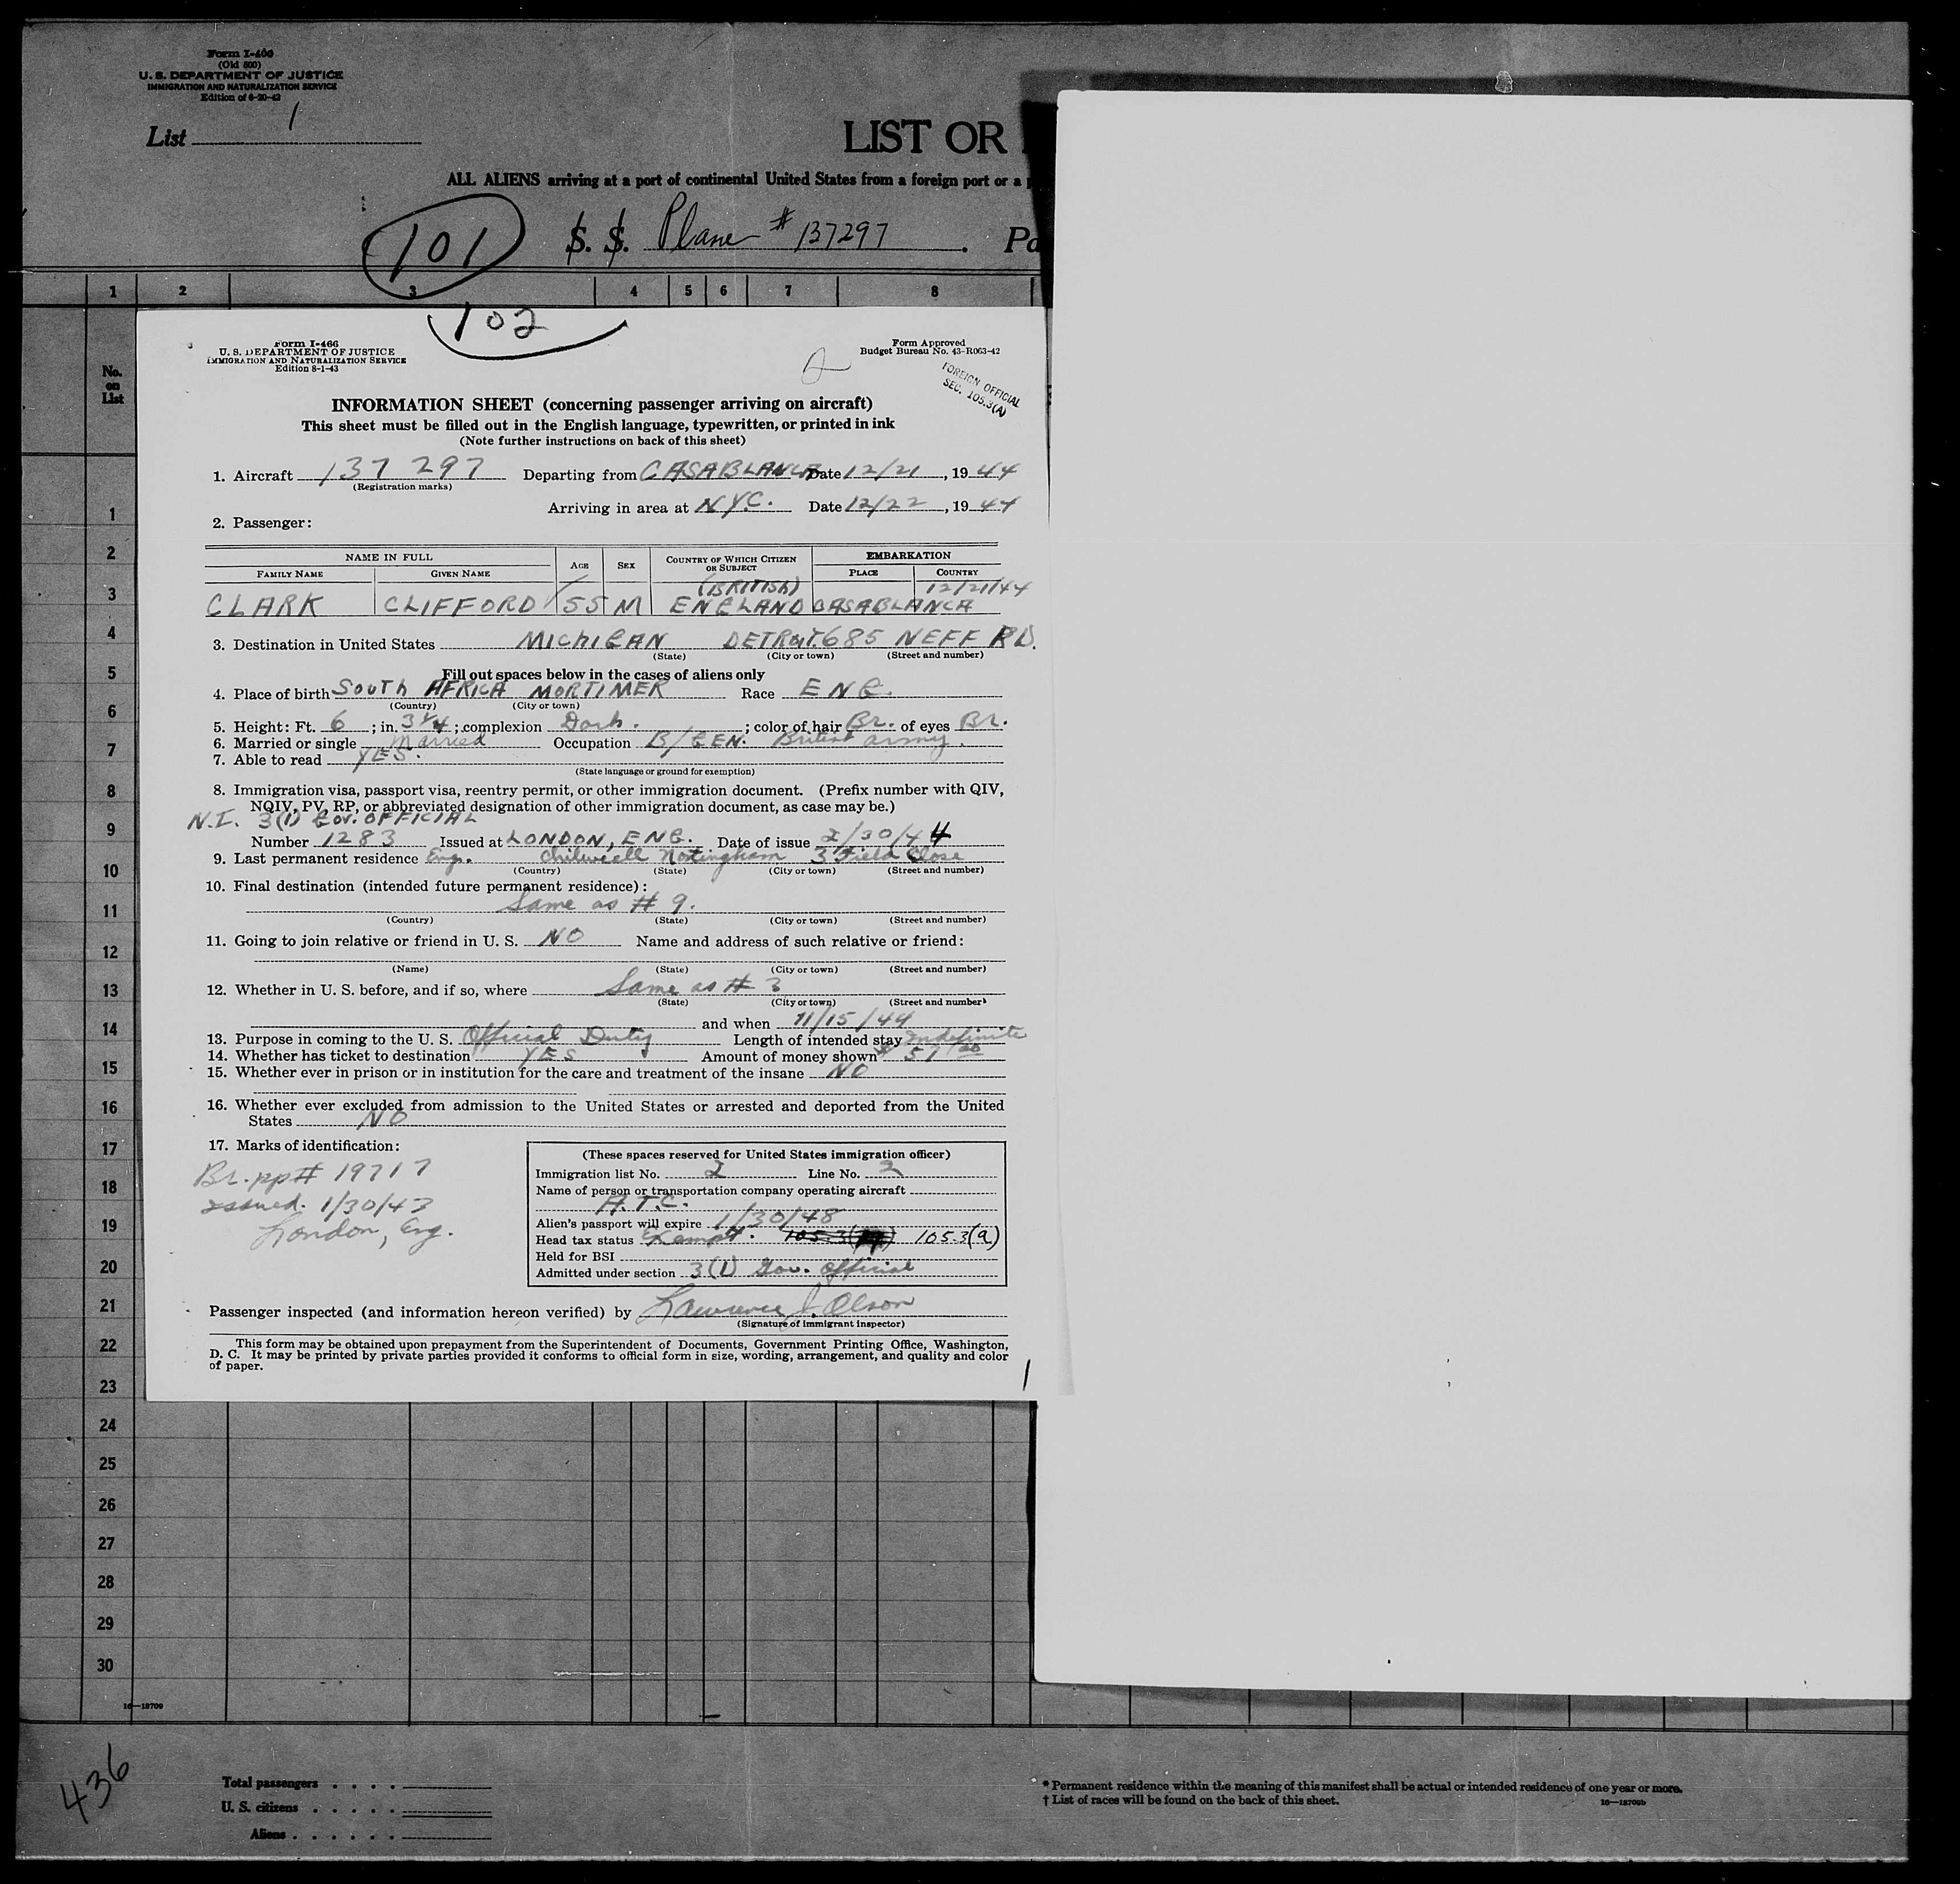 Form I-400
(Old 500)
U. S. DEPARTMENT OF JUSTICE
IMMIGRATION AND NATURALIZATION SERVICE
Edition of 6-20-42
List 1
LIST OR
ALL ALIENS arriving at a port of continental United States from a foreign port or a
101 S. S. Plane # 137297 .
1 2 3 4 5 6 7 8
102
Form I-466
U. S. DEPARTMENT OF JUSTICE
IMMIGRATION AND NATURALIZATION SERVICE
Edition 8-1-43
Form Approved
Budget Bureau No. 43-R063-42
FOREIGN OFFICIAL
SEC. 105.3(A)
No.
on
List
INFORMATION SHEET (concerning passenger arriving on aircraft)
This sheet must be filled out in the English language, typewritten, or printed in ink
(Note further instructions on back of this sheet)
1. Aircraft 137 297 Departing from CASABLANCA Date 12/21, 1944
(Registration marks)
Arriving in area at N.Y.C. Date 12/22, 1944
2. Passenger:
NAME IN FULL AGE SEX COUNTRY OF WHICH CITIZEN OR SUBJECT EMBARKATION
FAMILY NAME GIVEN NAME PLACE COUNTRY
(BRITISH) 12/21/44
CLARK CLIFFORD 55 M ENGLAND CASABLANCA
3. Destination in United States MICHIGAN DETROIT. 685 NEFF RD.
(State) (City or town) (Street and number)
Fill out spaces below in the cases of aliens only
4. Place of birth SOUTH AFRICA MORTIMER Race ENG.
(Country) (City or town)
5. Height: Ft. 6 ; in. 3 1/4 ; complexion Dark. ; color of hair Br. of eyes Br.
6. Married or single Married Occupation B/GEN. British army.
7. Able to read YES.
(State language or ground for exemption)
8. Immigration visa, passport visa, reentry permit, or other immigration document. (Prefix number with QIV,
NQIV, PV, RP, or abbreviated designation of other immigration document, as case may be.)
N.I. 3(1) GOV. OFFICIAL
Number 1283 Issued at LONDON, ENG. Date of issue 2/30/44
9. Last permanent residence Eng. Chilwell Nottingham 3 Field Close
(Country) (State) (City or town) (Street and number)
10. Final destination (intended future permanent residence):
Same as # 9.
(Country) (State) (City or town) (Street and number)
11. Going to join relative or friend in U. S. NO Name and address of such relative or friend:
(Name) (State) (City or town) (Street and number)
12. Whether in U. S. before, and if so, where Same as # 3
(State) (City or town) (Street and number)
and when 11/15/44
13. Purpose in coming to the U. S. Official Duty Length of intended stay Indefinite
14. Whether has ticket to destination YES Amount of money shown $ 51 00
15. Whether ever in prison or in institution for the care and treatment of the insane NO
16. Whether ever excluded from admission to the United States or arrested and deported from the United
States NO
17. Marks of identification:
Br. pp# 19717
issued. 1/30/43
London, Eng.
(These spaces reserved for United States immigration officer)
Immigration list No. 2 Line No. 2
Name of person or transportation company operating aircraft
A.T.C.
Alien's passport will expire 1/30/48
Head tax status Exempt. 105.3(a)
Held for BSI
Admitted under section 3(1) Gov. Official
Passenger inspected (and information hereon verified) by Lawrence J. Olson
(Signature of immigrant inspector)
This form may be obtained upon prepayment from the Superintendent of Documents, Government Printing Office, Washington,
D. C. It may be printed by private parties provided it conforms to official form in size, wording, arrangement, and quality and color
of paper.
1
1
2
3
4
5
6
7
8
9
10
11
12
13
14
15
16
17
18
19
20
21
22
23
24
25
26
27
28
29
30
16—18709
436
Total passengers . . . .
U. S. citizens . . . . .
Aliens . . . . . .
* Permanent residence within the meaning of this manifest shall be actual or intended residence of one year or more.
† List of races will be found on the back of this sheet.
16—18709b